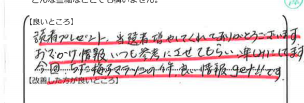 【良いところ】
読者プレゼント、当選者増やしてくれてありがとうございます
おでかけ情報いつも参考にさせてもらい楽しみにしてます
今回
の件良い情報getです。
【改善した方が良いところ】